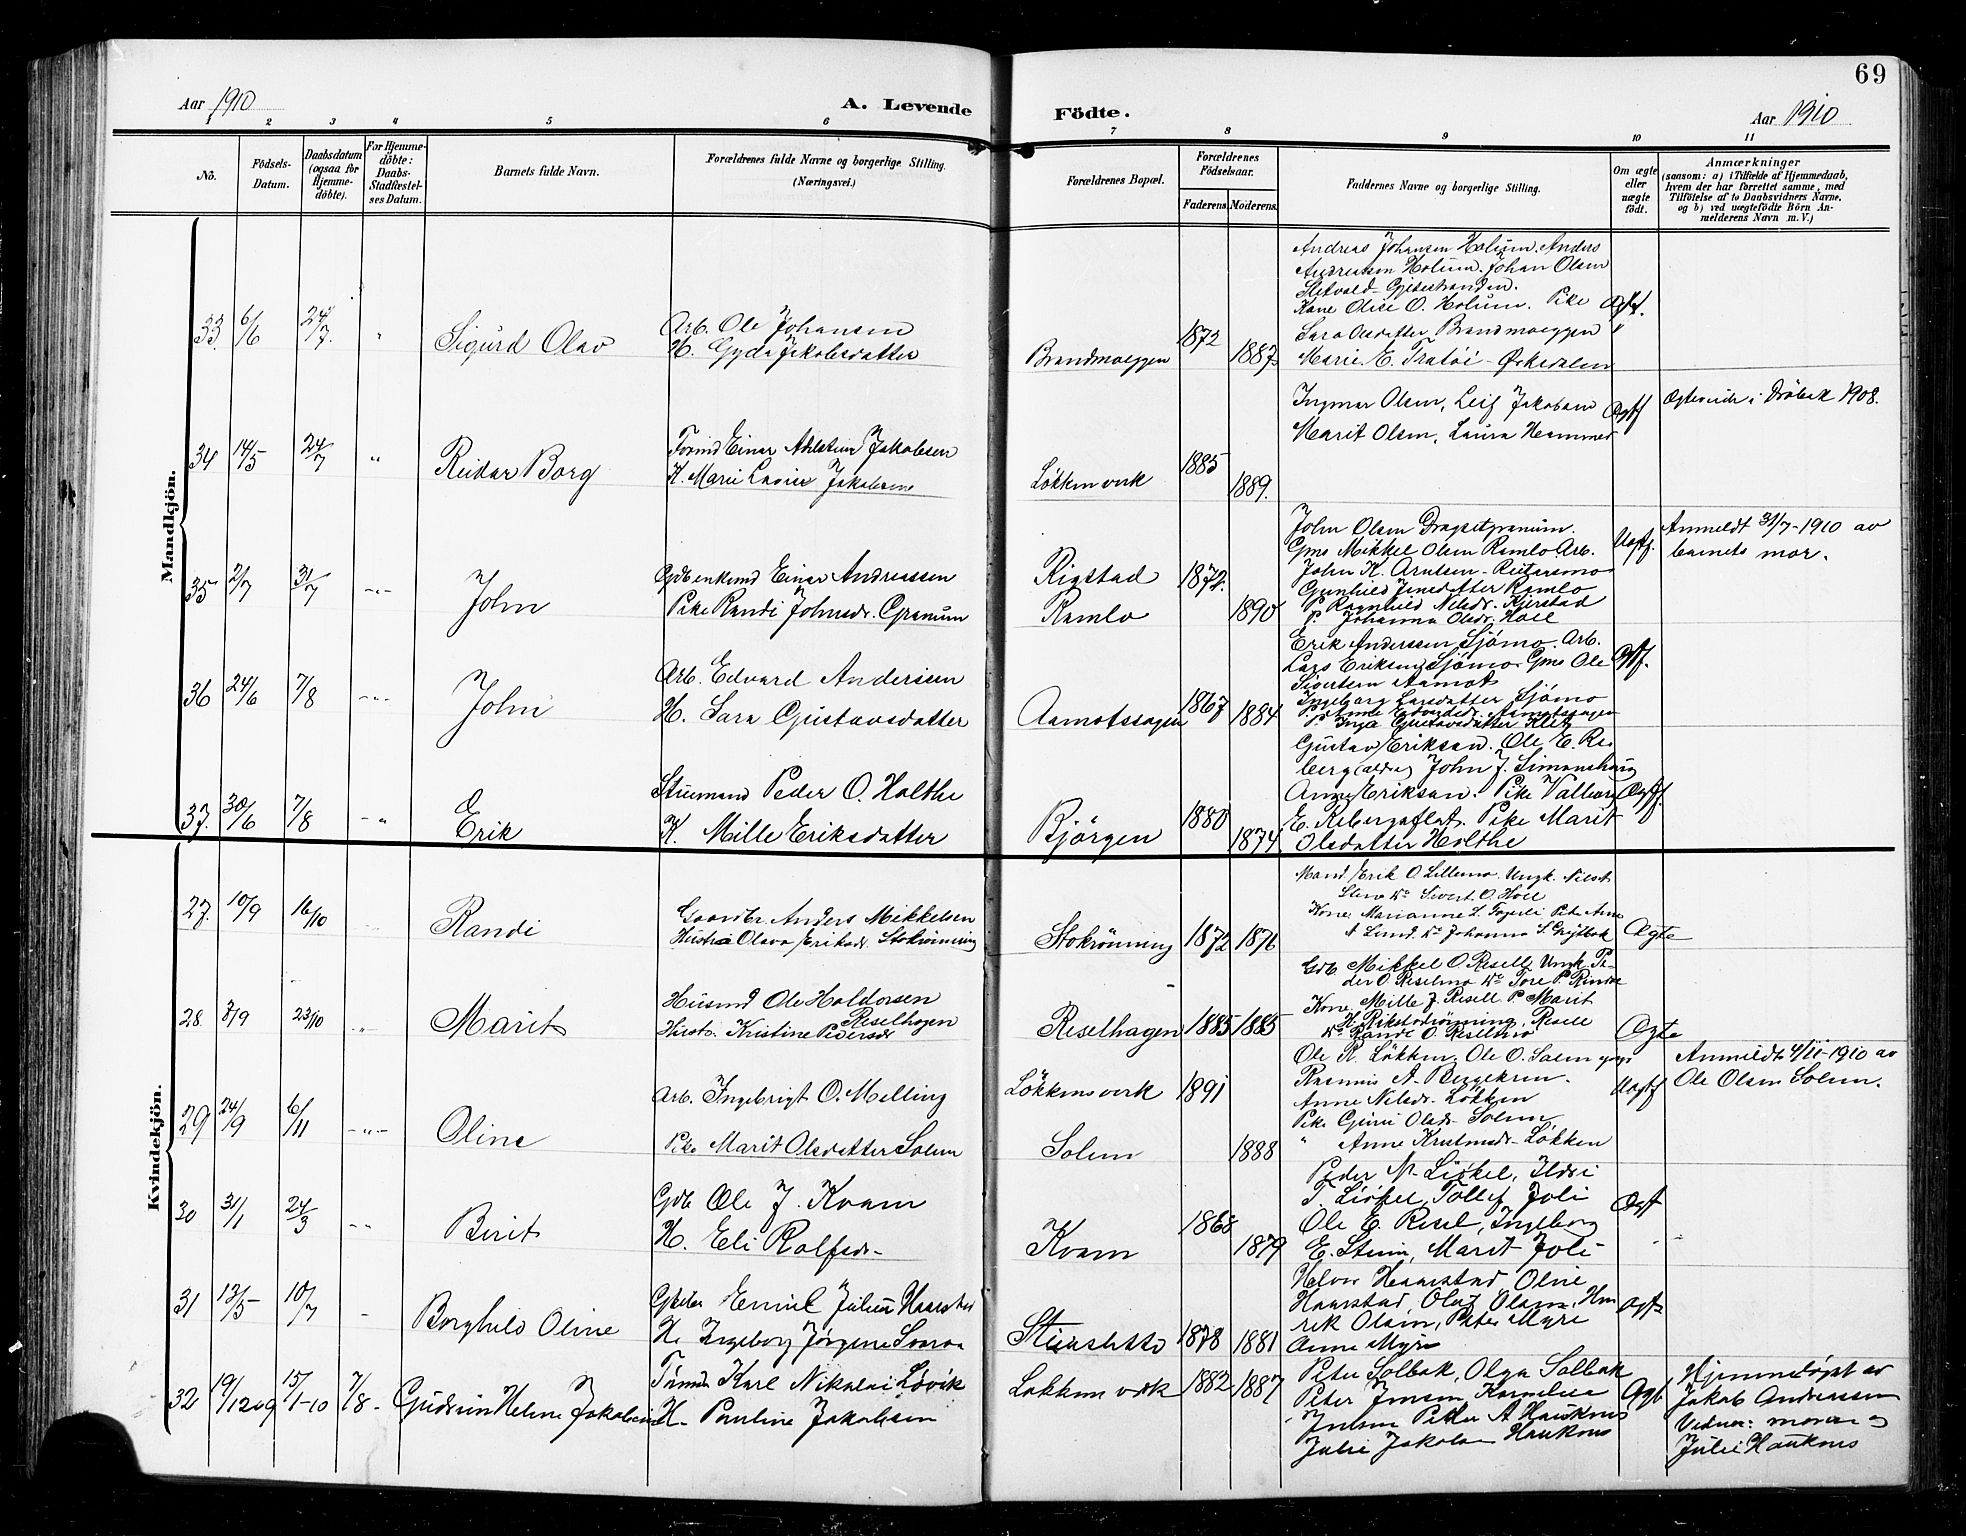 69
Aar 1910
A. Levende Födte.
Aar 1910
1 2 3 4 5 6 7 8 9 10 11
No.
Födsels-
Datum.
Daabsdatum
(ogsaa for
Hjemme-
döbte).
For Hjemme-
döbte:
Daabs-
Stadfæstel-
ses Datum.
Barnets fulde Navn.
Forældrenes fulde Navne og borgerlige Stilling.
(Næringsvei.)
Forældrenes Bopæl.
Forældrenes
Födselsaar.
Faderens. Moderens.
Faddernes Navne og borgerlige Stilling.
Om ægte
eller
uægte
födt.
Anmærkninger
(saasom: a) i Tilfælde af Hjemmedaab,
hvem der har forrettet samme, med
Tilföielse af to Daabsvidners Navne,
og b) ved uægtefödte Börn An-
melderens Navn m. V.)
Mandkjön.
33. 6/6 24/7. " Sigurd Olav
Arb. Ole Johansen
H. Gyda Jakobsdatter
Brandmoeggen 1872 1887
Andreas Johansen Holum. Anders
Andreasen Holum. Johan Olsen
Sletvold - Gjelestranden.
Kone Olise O. Holum. Pike
Sara Olsdatter Brandmoeggen
Marie E. Tratöi - Orkedalen
Ægtf.
34 14/5 24/7 " Reidar Borg
Formd Einar Ahlstem Jakobsen
K. Marie Jakobsen
Lökken verk 1885 1889.
Ingmar Olsen, Leif Jakobsen
Marit Olsen, Laura Hammer
Ægtf
Ægteviede i Dröbak 1908.
35 2/7 31/7 -"- John
Gdb enkemd Einar Andreassen
Pike Randi Johnsdr. Granum
Rigstad
Ramlo 1872. 1890
John Olsen Dragsetgranum.
Gms Mikkel Olsen Ramlo Arb.
John K. Arntsen -
Gunhild Jensdatter Ramlo
P. Ragnhild Nilsdr. Kjerstad
P. Johanna Olsdr. Hoel
Uægtf.
Anmeldt 31/7 - 1910 av
barnets mor.
36 24/6 7/8 -"- John
Arb. Edvard Andersen
H. Sara Gustavsdatter
Aamotssagen 1867 1884
Erik Anderssen Sjömo. Arb.
Lars Eriksen Sjömo Gms Ole
Sivertsen Aamot
Ingeborg Larsdatter Sjömo
P. Anne Edvardsdr. Aamotssagen
P. Inga Gustavsdatter
Ægtf.
37. 30/6 7/8 -"- Erik
Stuemand Peder O. Holthe
K. Mille Eriksdatter
Björgen 1880 1874
Gustav Eriksen. Ole E. Re-
berg (ældre) John J. Simonshaug
Anne Eriksen. Pike Valborg
E. Rebergsflat. Pike Marit
Olsdatter Holthe
Ægtf.
Kvindekjön.
27. 10/9 16/10 Randi
Gaardbr. Anders Mikkelsen
Hustru Olava Eriksdr. Stokrönning
Stokrönning 1872 1876
Mand Erik O. Lillemo. Ungk. Nils
Steno do Sivert O. Hoel
Kone Marianne L. Fagerli Pike Anne
A Lund. do Johanna S. Grytbak
Ægte
28. 3/9 23/10 -"- Marit
Husmd Ole Haldorsen
Reselhagen
Hustr. Kristine Pedersdr
Reselhagen 1885 1885
Gdb Mikkel O. Resell Ungk Pe-
der O. Reselmo do Tore P. Rindre
Kone Mille J. Resell P. Marit
H. Rikstadrönning, Resell
do Randi O. Reselmo
Ægte
29 24/9 6/11 -"- Oline
Arb. Ingebrigt O. Melling
Pike Marit Olsdatter Solem
Lökkens verk 1891
Solem 1888
Ole R. Lökken Ole O. Solem
Rasmus A. Beggekren.
Anne Nilsdr. Lökken
Pike Guru Olsdr. Solem
" Anne Knutsdr. Lökken
Uægtf
Anmeldt 4/11 - 1910 av
Ole Olsen Solem.
30 31/1 24/3 -"- Berit
Gdb Ole J. Kvam
H. Eli Rolfsdr.
Kvam 1868 1879
Peder N. Liskel, Ildri
T. Liskel, Tollef Joli
Ole E. Resel, Ingeborg
E. Steiri, Marit Joli
Ægtf
31 13/5 10/7 - Borghild Oline
Emil Julius Haarstad
H. Ingeborg Jørgine
1878 1881
Halvor Haarstad Oline
Haarstad, Oluf Olsen, Hen-
rik Olsen, Peter Myre
Anne Myre
Ægtf
32 19/12 09 15/1-10 7/8- Gudrun Helene Jakobsen
Karl Nikolai Lövik
H. Pauline Jakobsen
Løkken verk 1882 1887
Peter Solbak, Olga Solbak
Peter Jensen Kornelia
Jensen Petter A Hauknes
Julie Jakobsen Hauknes
Ægtf
Hjemmedøpt av
Jakob Andreassen
Vidner: moren og
Julie Hauknes